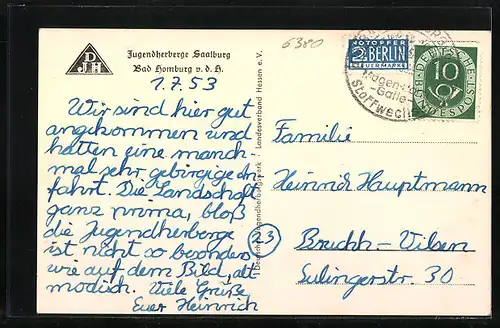 DJH
Jugendherberge Saalburg
Bad Homburg v. d. H.
6380
1.7.53
Wir sind hier gut
angekommen und
hatten eine manch-
mal sehr gebirgige An-
fahrt. Die Landschaft
ganz prima, bloß
die Jugendherberge
ist nicht so besonders
wie auf dem Bild, alt-
modisch. Viele Grüße
Euer Heinrich
Deutsches Jugendherbergswerk / Landesverband Hessen e. V.
23
NOTOPFER
2 BERLIN
STEUERMARKE
Magen-
-Galle-
Stoffwech
DEUTSCHE BUNDESPOST
10
Familie
Heinrich Hauptmann
Bruchh-Vilsen
Sulingerstr. 30